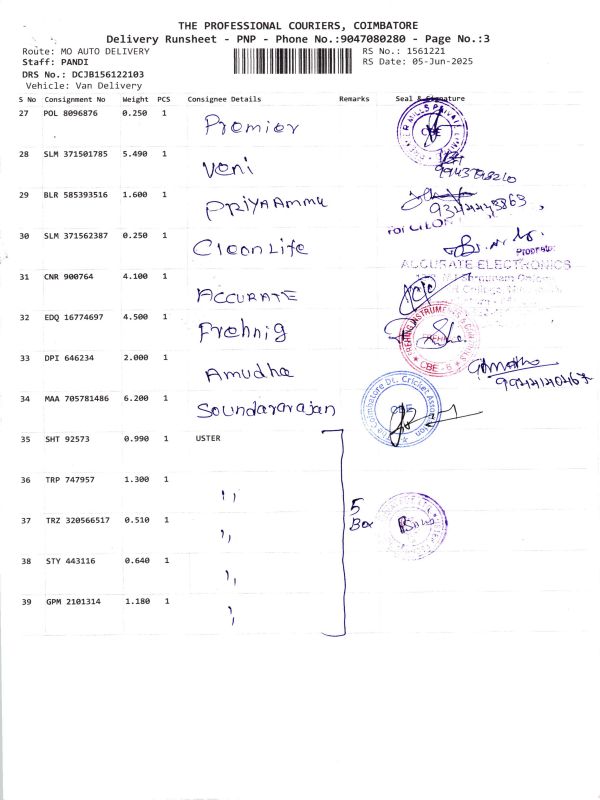 THE PROFESSIONAL COURIERS, COIMBATORE
Delivery Runsheet - PNP - Phone No.:9047080280 - Page No.:3
Route: MO AUTO DELIVERY RS No.: 1561221
Staff: PANDI RS Date: 05-Jun-2025
DRS No.: DCJB156122103
Vehicle: Van Delivery
S No Consignment No Weight PCS Consignee Details Remarks Seal & Signature
27 POL 8096876 0.250 1 Premier CBE
28 SLM 371501785 5.490 1 Veni
29 BLR 585393516 1.600 1 PRIYAAMMU
30 SLM 371562387 0.250 1 Cleanlife
ACCURATE ELECTRONICS
31 CNR 900764 4.100 1 ACCURATE
32 EDQ 16774697 4.500 1 Prehnig CBE - 6
33 DPI 646234 2.000 1 Amudha
34 MAA 705781486 6.200 1 Soundararajan The Coimbatore Dt. Cricket Association CBE
35 SHT 92573 0.990 1 USTER
36 TRP 747957 1.300 1 ,,
37 TRZ 320566517 0.510 1 ,, 5 Box
38 STY 443116 0.640 1 ,,
39 GPM 2101314 1.180 1 ,,